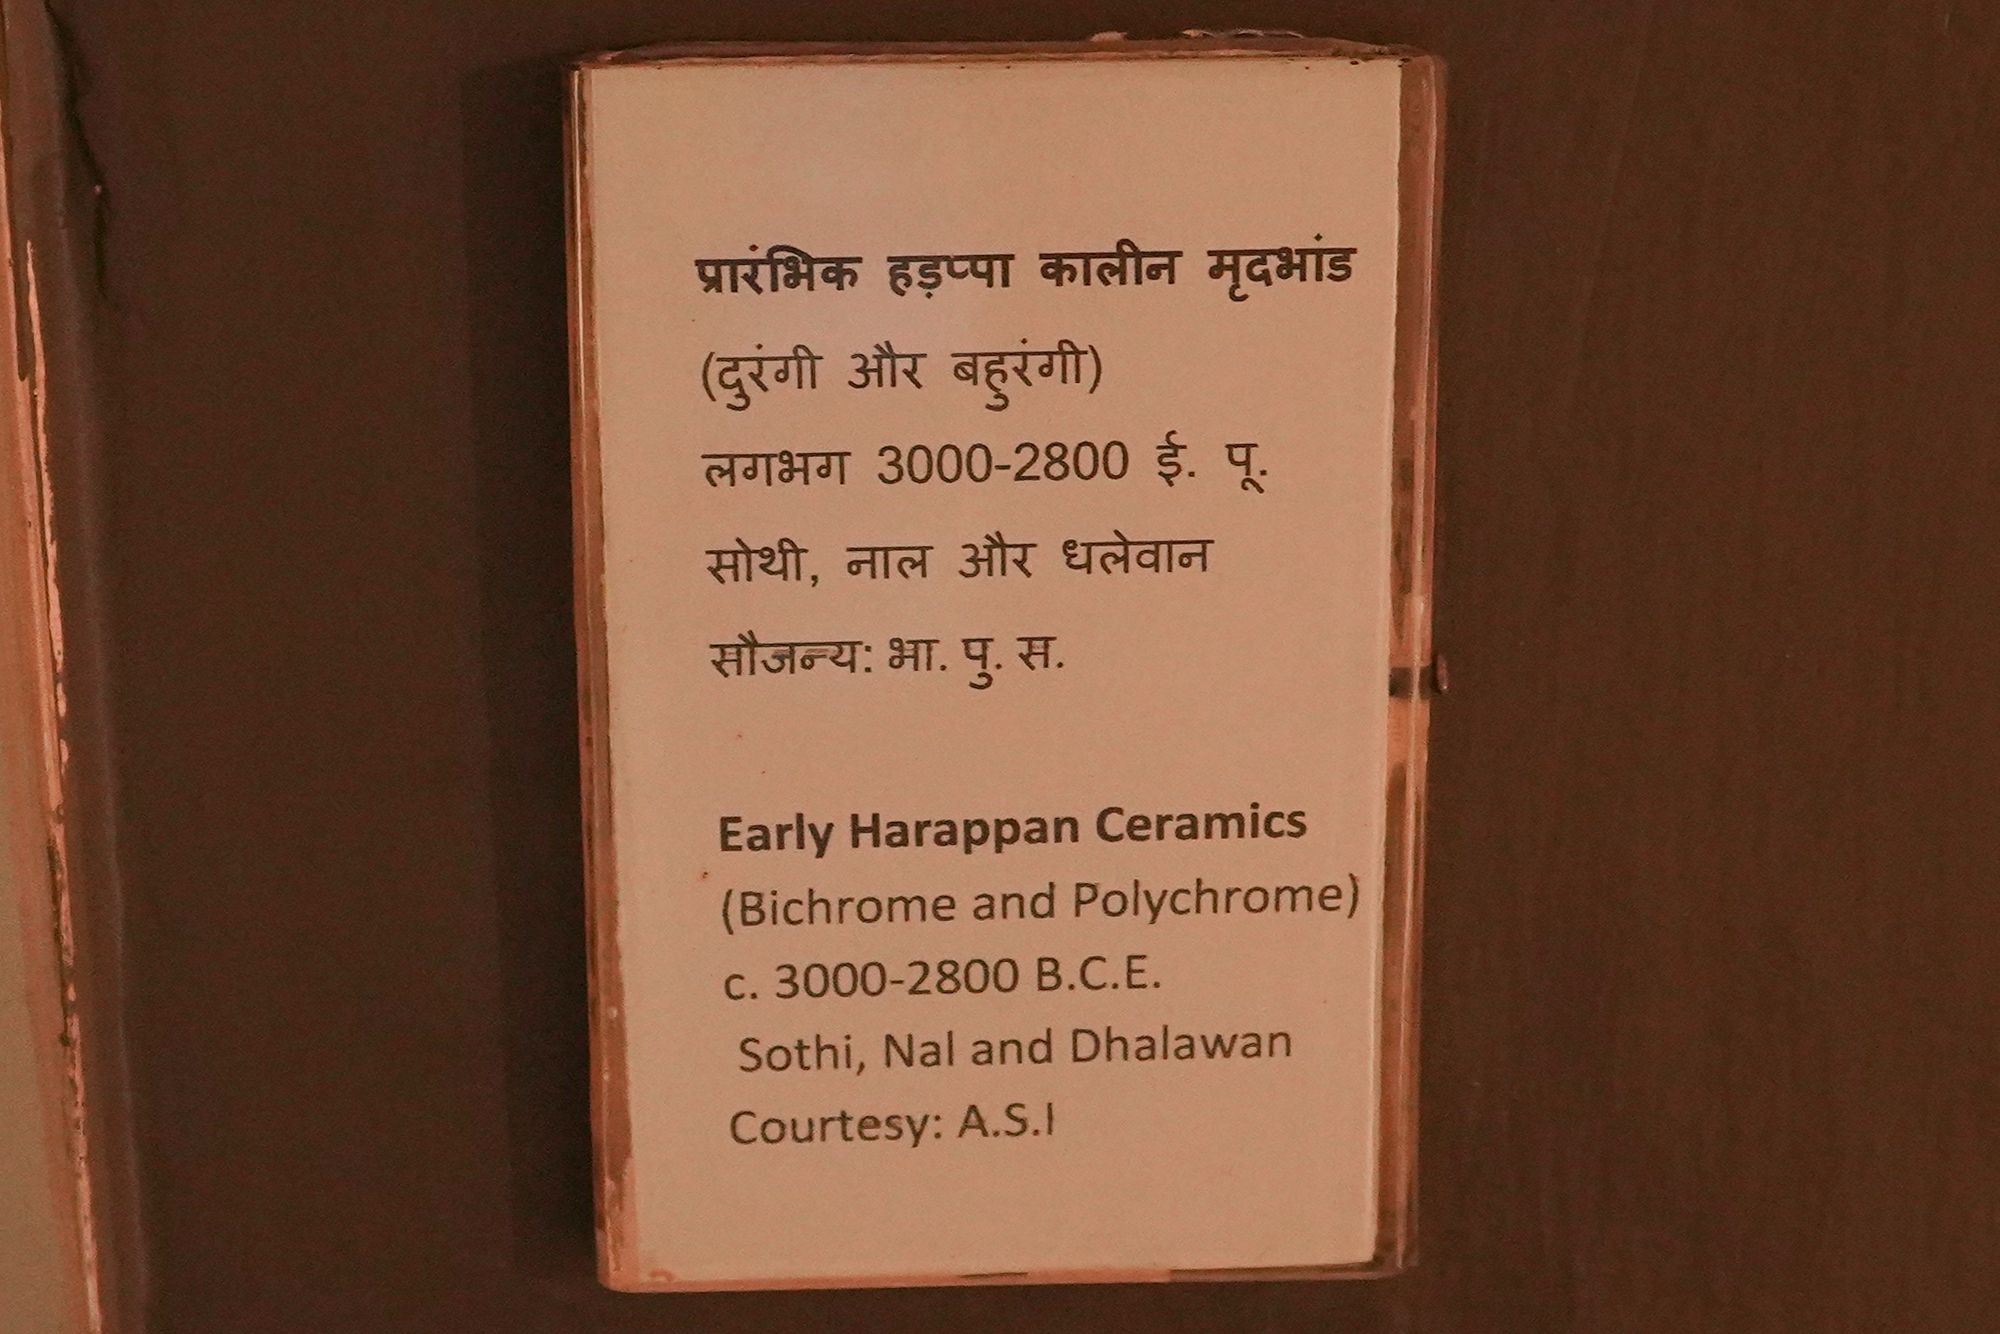 प्रारंभिक हड़प्पा कालीन मृदभांड
(दुरंगी और बहुरंगी)
लगभग 3000-2800 ई. पू.
सोथी, नाल और धलेवान
सौजन्य: भा. पु. स.
Early Harappan Ceramics
(Bichrome and Polychrome)
c. 3000-2800 B.C.E.
Sothi, Nal and Dhalawan
Courtesy: A.S.I